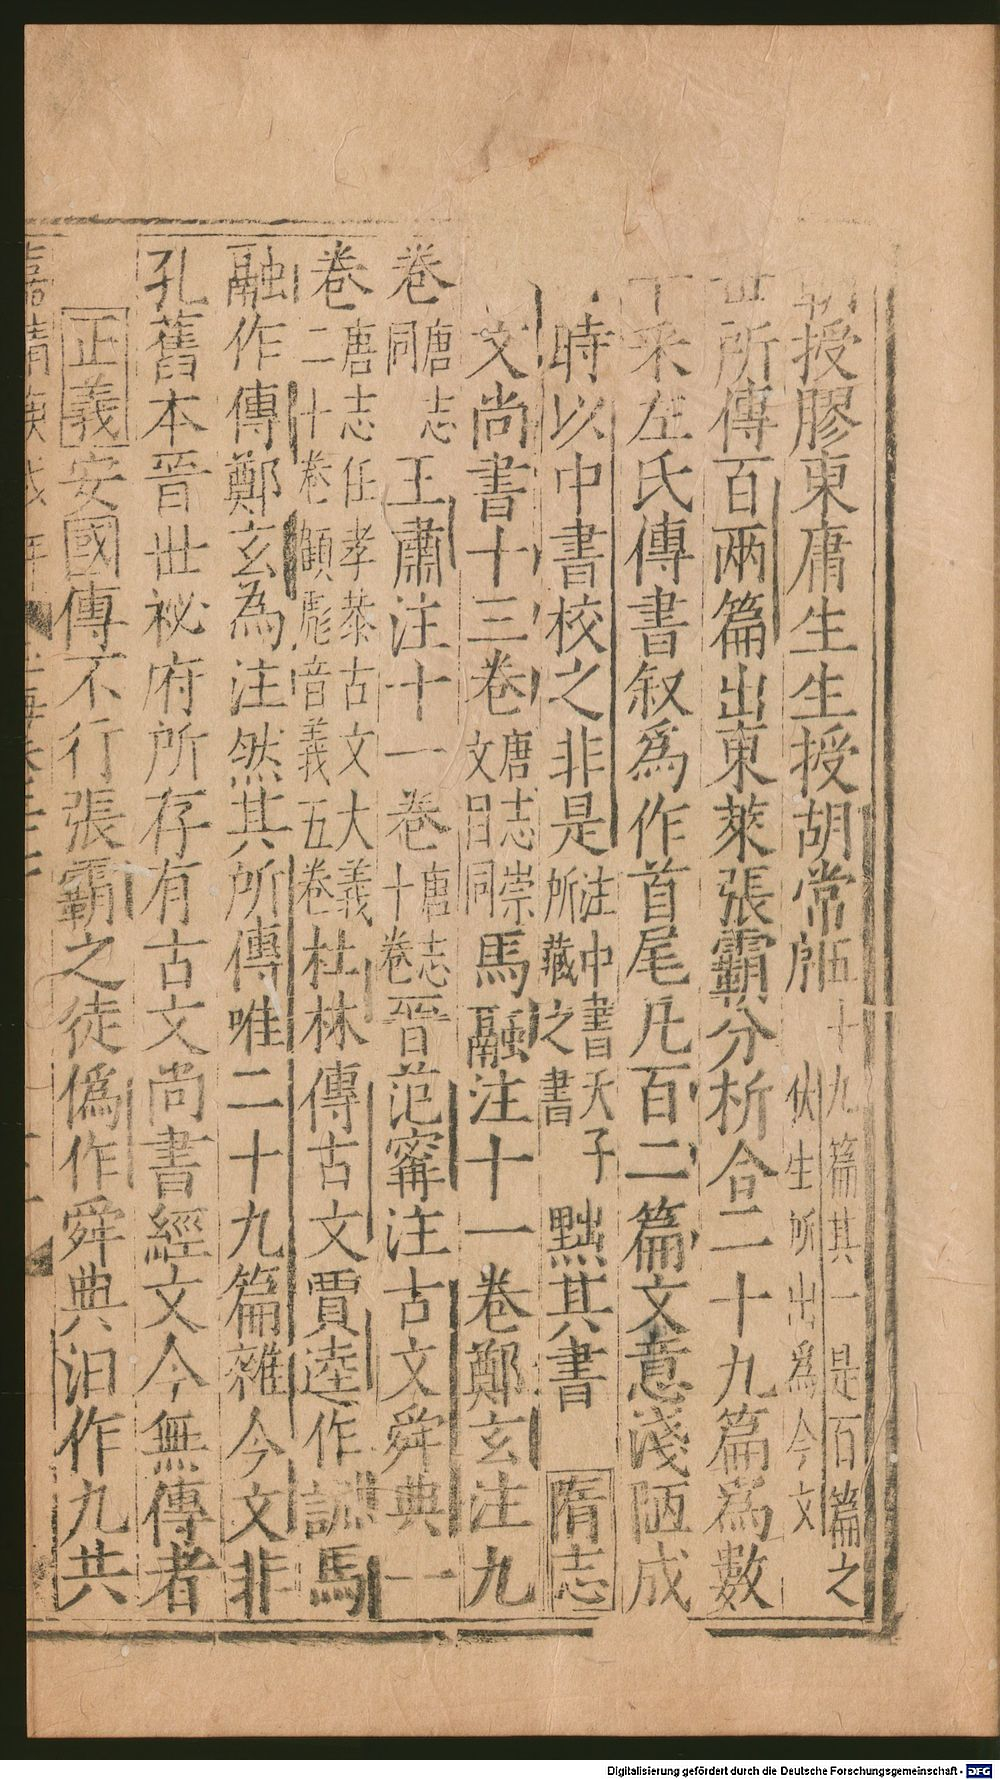 朝授膠東庸生生授胡常所五十九篇其一是百篇之伏生所出爲今文
世所傳百兩篇出東萊張霸分析合二十九篇爲數
十采左氏傳書叙爲作首尾凡百二篇文意淺陋成
時以中書校之非是注中書天子所藏之書黜其書 隋志
文尚書十三卷唐志崇文目同馬融注十一卷鄭玄注九
卷唐志同王肅注十一卷唐志十卷晉范甯注古文舜典一
卷唐志任孝恭古文大義二十卷顧彪音義五卷杜林傳古文賈逵作訓馬
融作傳鄭玄為注然其所傳唯二十九篇雜今文非
孔舊本晉世祕府所存有古文尚書經文今無傳者
正義安國傳不行張霸之徒偽作舜典汩作九共
Digitalisierung gefördert durch die Deutsche Forschungsgemeinschaft - DFG